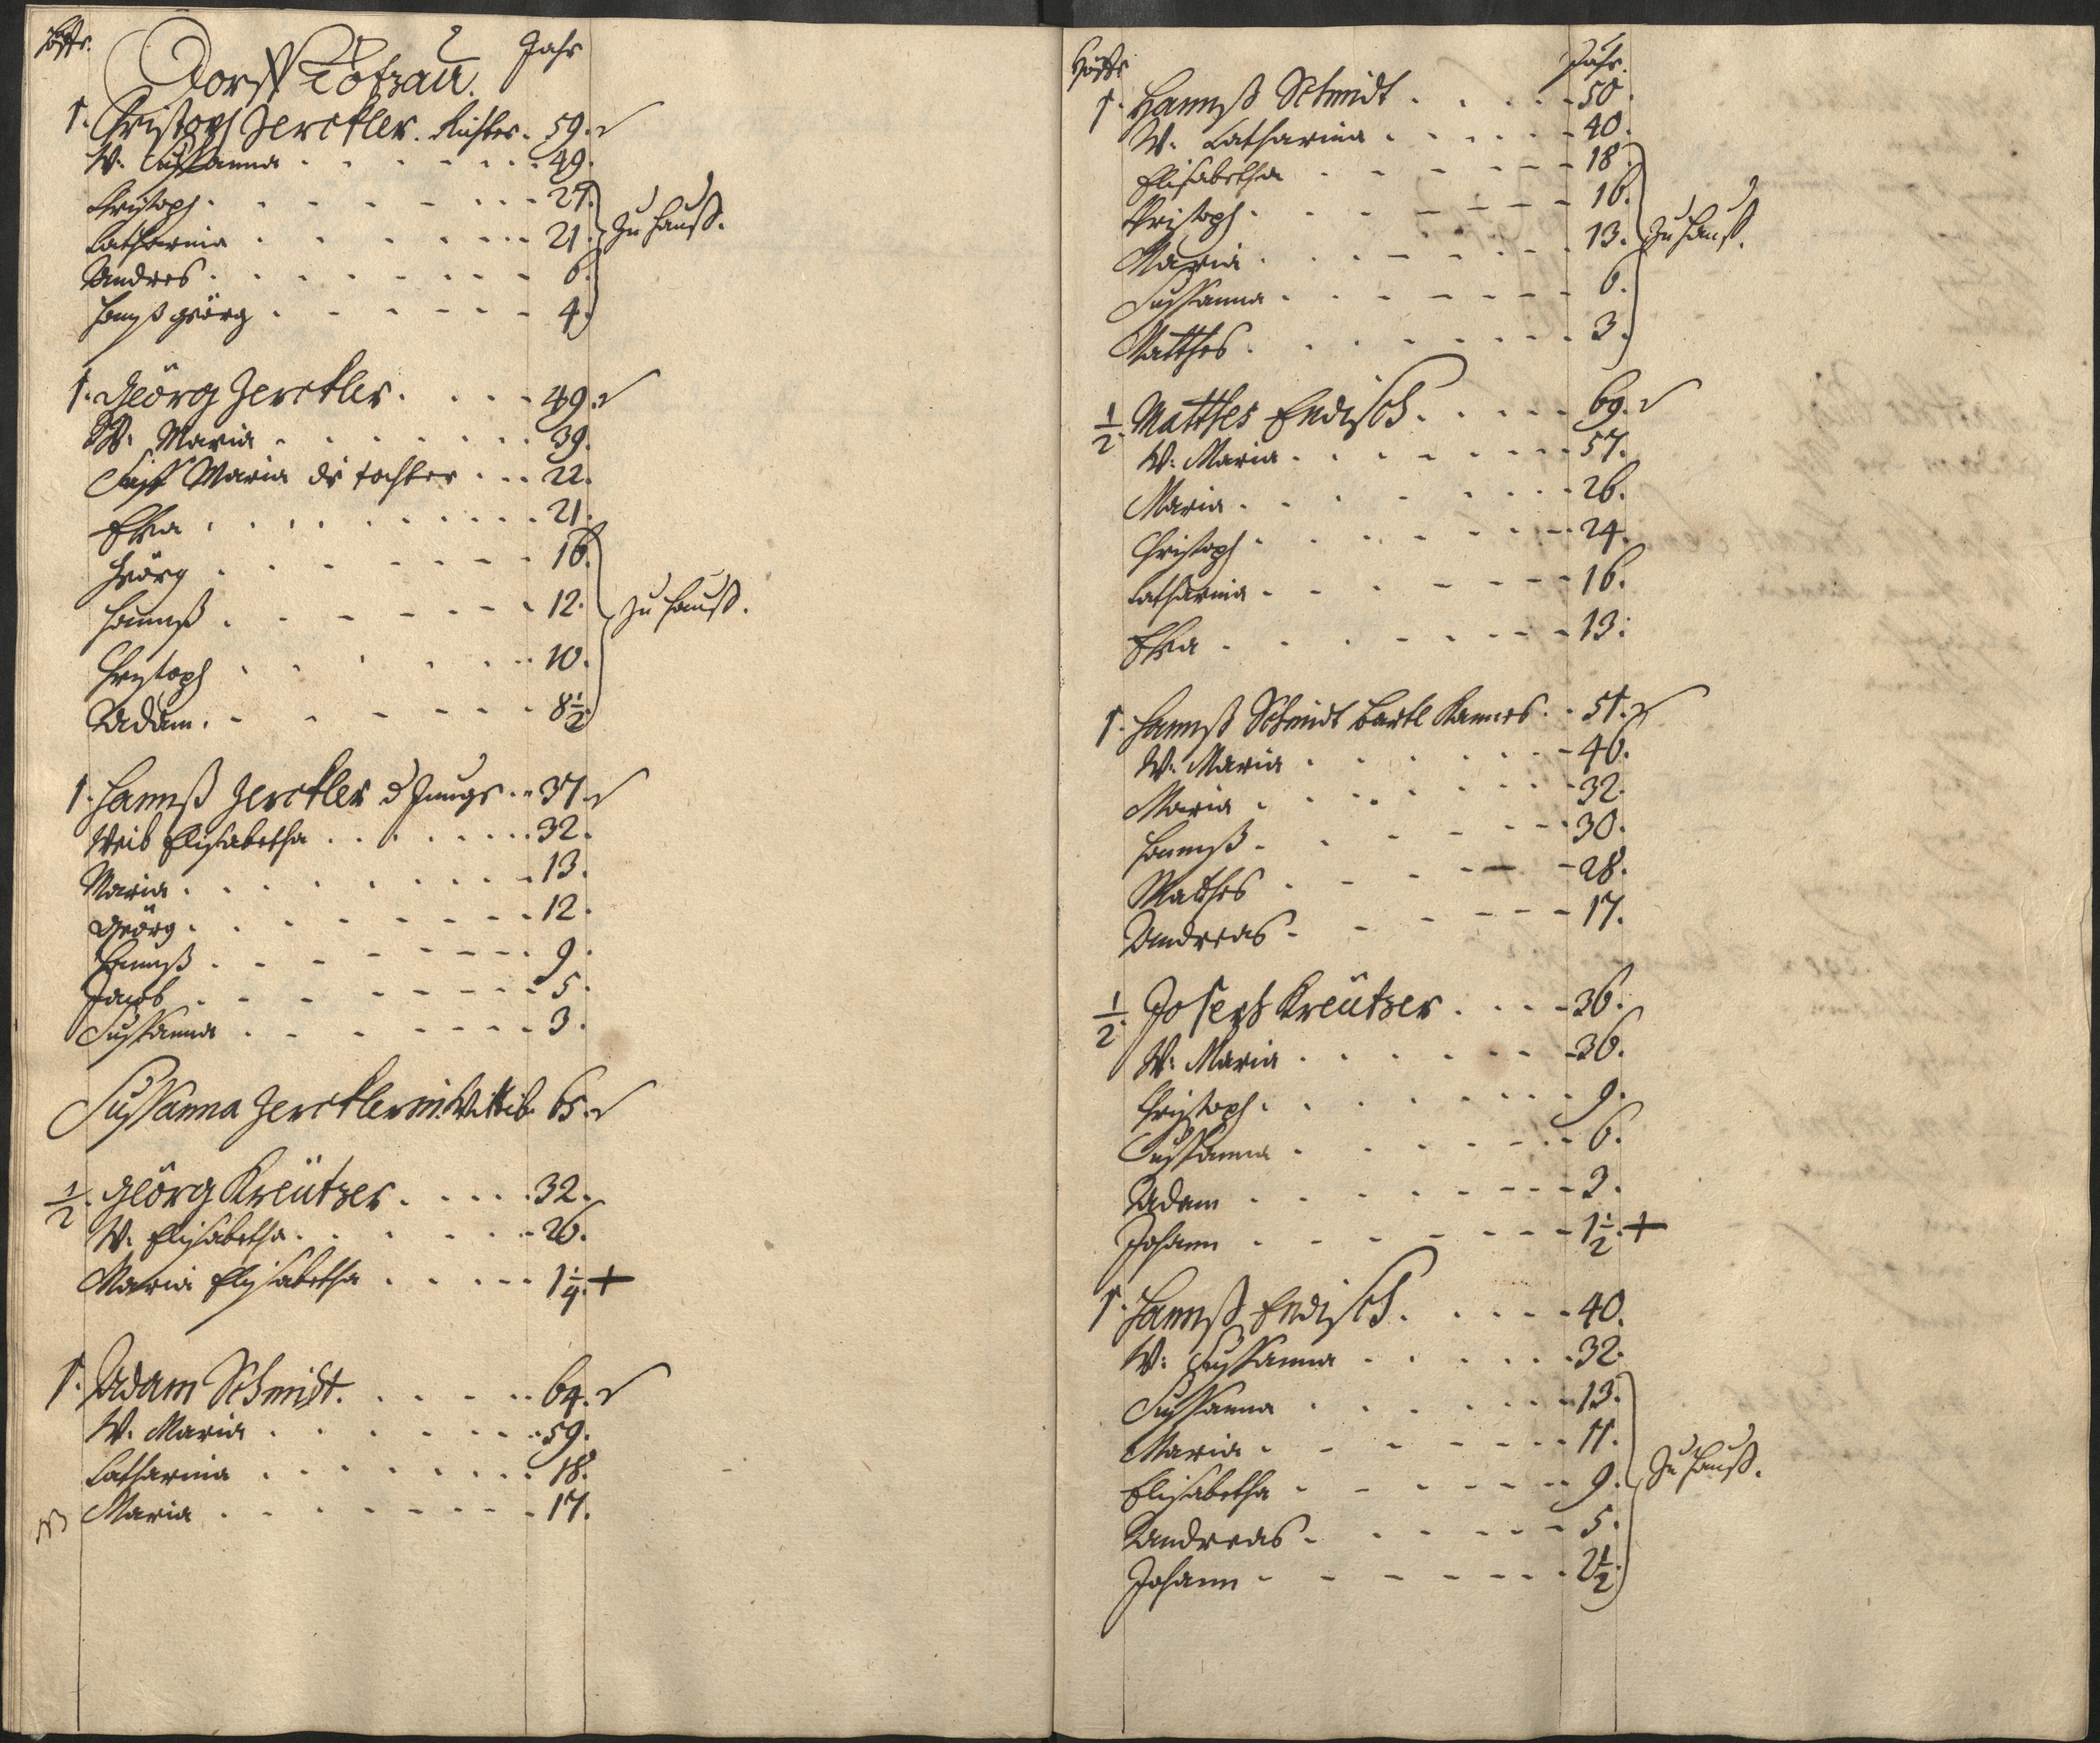 Höffe. Dorff Kotzau. Jahr
1. Christoph Zerckler. Richter. 59.
W. Sussanna 49.
Christoph 27.
Catharina 21. zu Hauß.
Andres 6.
Hanß Georg 4.
1. Geörg Zerckler. 49.
W. Maria 39.
Maria die tochter 22.
Eva 21.
Geörg 16.
Hannß 12. zu Hauß.
Christoph 10.
Adam. 8 1/2
1. Hannß Zerckler d Junge 37.
Weib Elisabetha 32.
Maria 13.
Geörg 12.
Hannß 9.
Jacob 5.
Sussanna 3.
Sussanna Zercklerin Wittib 65.
1/2. Geörg Kreützer. 32.
W. Elisabetha 26.
Maria Elisabetha 1/4. +
1. Adam Schmidt. 64.
W. Maria 59.
Catharina 18.
Maria 17.
Höffe Jahr.
1. Hannß Schmidt 50.
W. Catharina 40.
Elisabetha 18.
Christoph 16.
Maria 13. zu Hauß.
Sussanna 6.
Matthes 3.
1/2. Matthes Endisch 69.
W. Maria 57.
Maria 26.
Christoph 24.
Catharina 16.
Eva 13.
1. Hannß Schmidt Bartl 51.
W. Maria 46.
Maria 32.
Hannß 30.
Matthes 28.
Andreas 17.
1/2. Joseph Kreützer 36.
W. Maria 36.
Christoph 9.
Sussanna 6.
Adam 3.
Johann 1 1/2. +
1. Hannß Endisch 40.
W. Sussanna 32.
Sussanna 13.
Maria 11.
Elisabetha 9. zu Hauß.
Andreas 5.
Johann 2 1/2